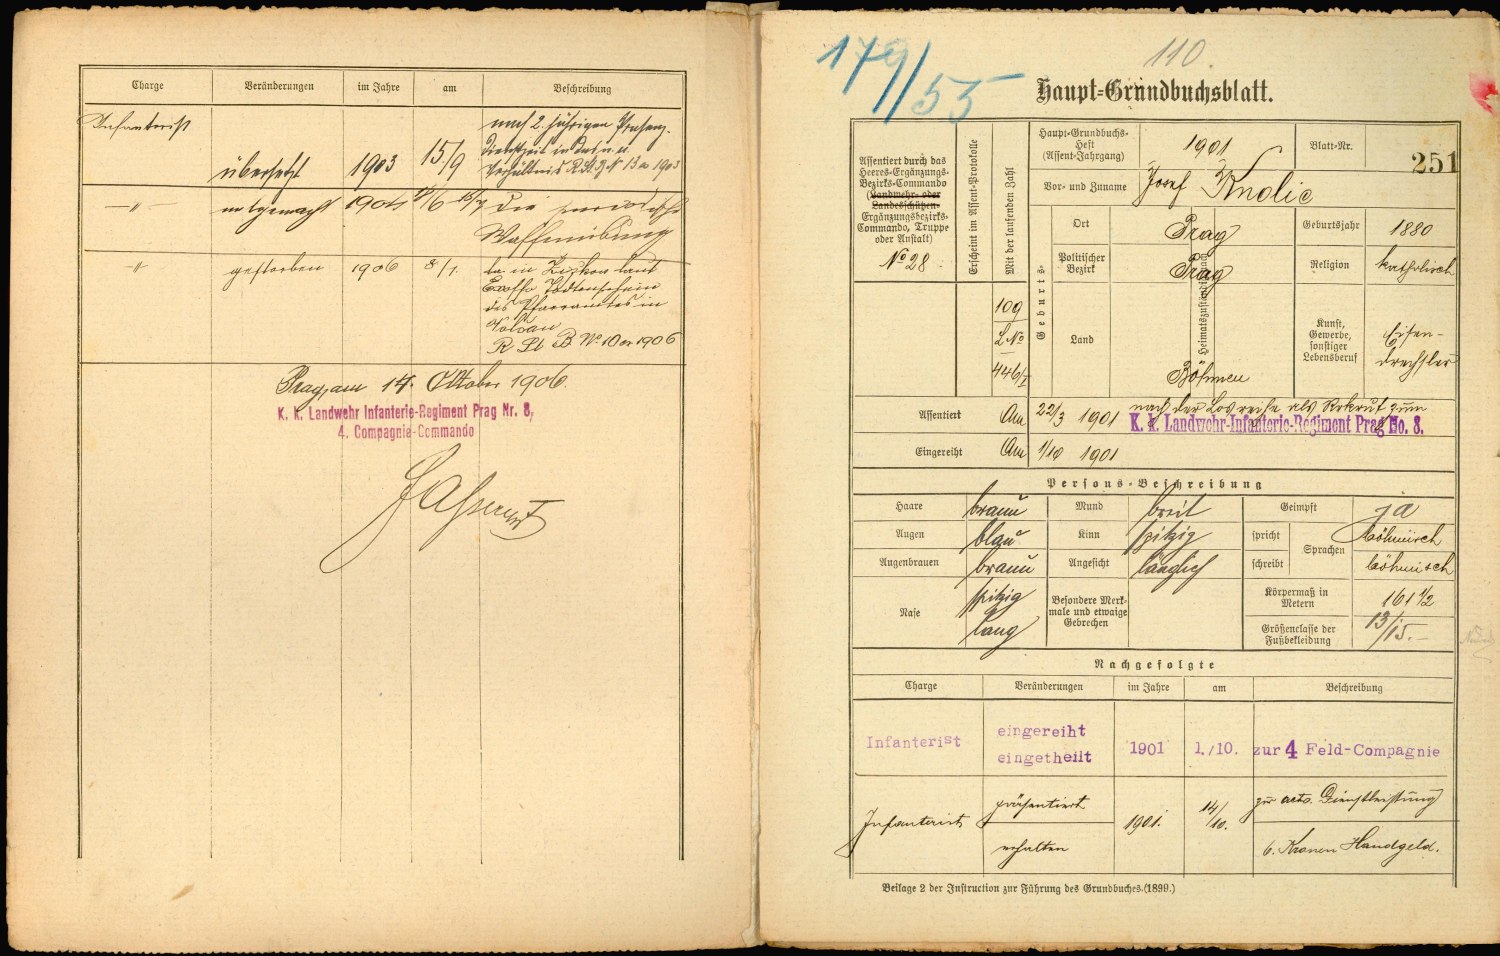 Charge Veränderungen im Jahre am Beschreibung
Infanterist übersetzt 1903 15/9 nach 2. jährigen Präsenz-
dienstzeit in das n. a.
Verhältnis R.St.B. N 13 ex 1903
—〃— mitgemacht 1904 15/7 die periodische
Waffenübung
〃 gestorben 1906 8/1. in Zizkow laut
Todtenschein
des Pfarramtes in
Wolšan
R St B No 10 ex 1906
Prag, am 14. Oktober 1906.
K. k. Landwehr Infanterie-Regiment Prag Nr. 8,
4. Compagnie-Commando
179/55
110.
Haupt-Grundbuchsblatt.
Assentiert durch das
Heeres-Ergänzungs-
Bezirks-Commando
(Landwehr- oder
Landesschützen-
Ergänzungsbezirks-
Commando, Truppe
oder Anstalt)
No 28.
Erscheint im Assent-Protokolle
Mit der laufenden Zahl
109
L No
446/I
Haupt-Grundbuchs-
Heft
(Assent-Jahrgang)
1901
Blatt-Nr.
251
Vor- und Zuname Josef Knolic
Geburts-
Ort Prag
Politischer
Bezirk
Prag
Land Böhmen
» Heimatszuständigkeit
Geburtsjahr 1880
Religion katholisch
Kunst,
Gewerbe,
sonstiger
Lebensberuf
Eisen-
drechsler
Assentiert Am 22/3 1901 nach der Losreihe als Rekrut zum
K. k. Landwehr-Infanterie-Regiment Prag No. 8.
Eingereiht Am 1/10 1901
Persons-Beschreibung
Haare braun Mund breit Geimpft ja
Augen blau Kinn spitzig spricht Sprachen böhmisch
Augenbrauen braun Angesicht länglich schreibt böhmisch
Nase spitzig
lang
Besondere Merk-
male und etwaige
Gebrechen
Körpermaß in
Metern
161 1/2
Größenclasse der
Fußbekleidung
13/15.–
Nachgefolgte
Charge Veränderungen im Jahre am Beschreibung
Infanterist eingereiht
eingetheilt 1901 1./10. zur 4 Feld-Compagnie
Infanterist präsentiert 1901. 14/10. zur activ. Dienstleistung
erhalten 6. Kronen Handgeld.
Beilage 2 der Instruction zur Führung des Grundbuches (1899.)